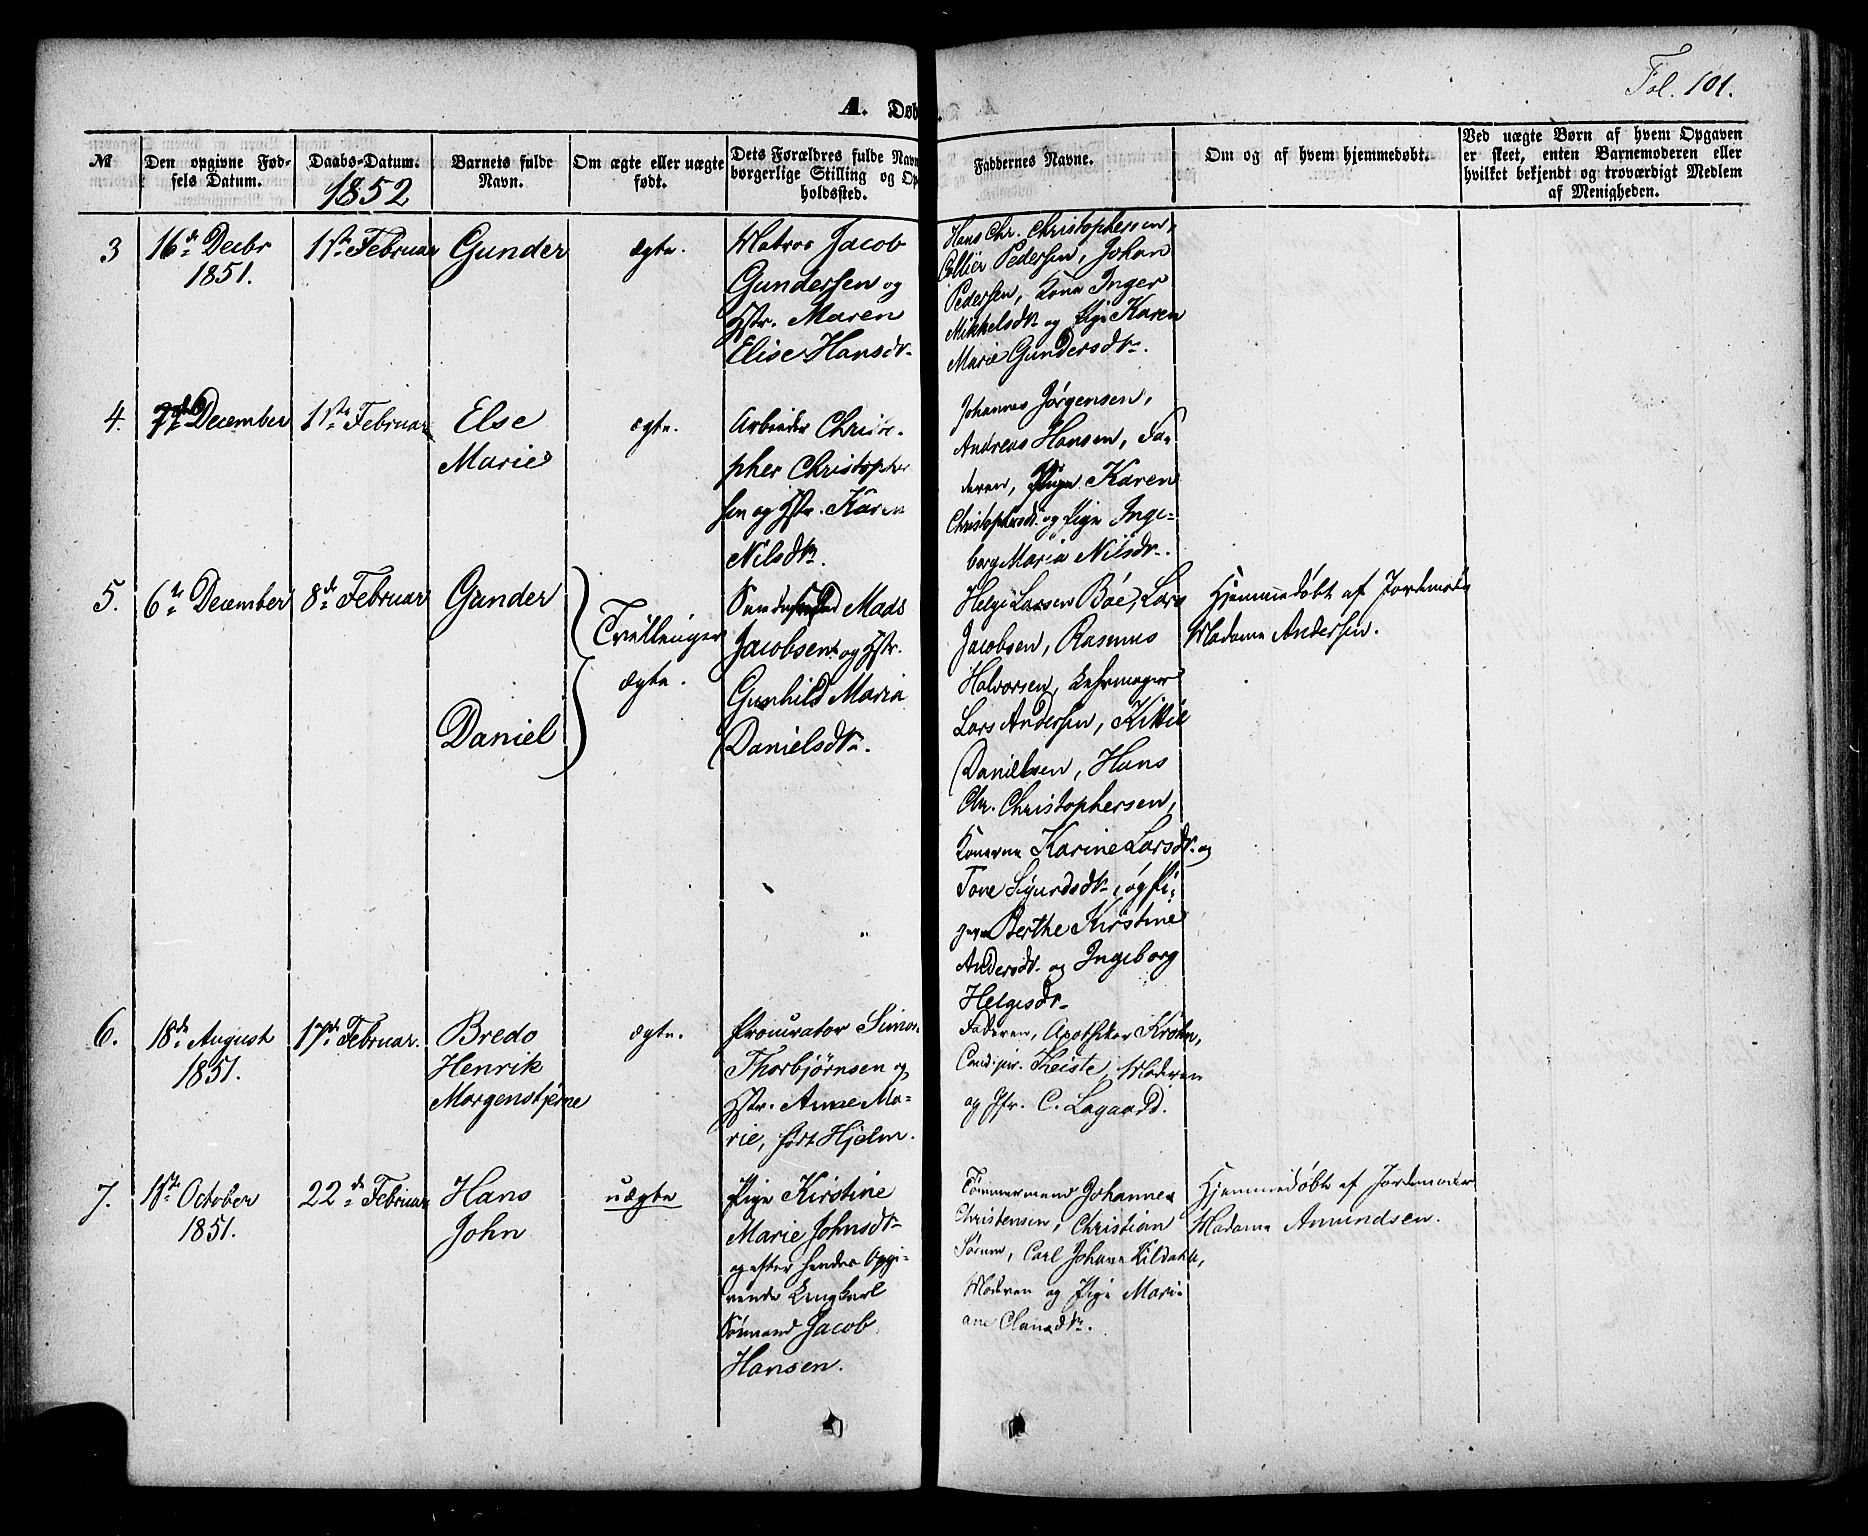 Fol. 101.
A. Døb
№
Den opgivne Fød-
sels Datum.
Daabs-Datum.
1852
Barnets fulde
Navn.
Om ægte eller uægte
født.
Dets Forældres fulde Navn
borgerlige Stilling og Op
holdssted.
Faddernes Navne.
Om og af hvem hjemmedøbt.
Ved uægte Børn af hvem Opgaven
er skeet, enten Barnemoderen eller
hvilket bekjendt og troværdigt Medlem
af Menigheden.
3
16de Decbr
1851.
1ste Februar
Gunder
ægte.
Matros Jacob
Gundersen og
Hstr. Maren
Elise Hansdr.
Hans Chr. Christophersen,
Pedersen, Johan
Pedersen, Kone Inger
Mikkelsdr. og Pige Karen
Marie Gundersdr.
4.
December
1ste Februar
Else
Marie
ægte.
Arbeider Christo-
pher Christopher
sen og Hstr. Karen
Nilsdr.
Johannes Jørgensen,
Andreas Hansen, Fa-
deren, Pige Karen
Christophersdr. og Pige Inge-
borg Maria Nilsdr.
5.
6te December
8de Februar
Gunder
Daniel
Tvillinger
ægte.
Mads
Jacobsen og Hstr.
Gunhild Maria
Danielsdr.
Helge Larsen Bøe, Lars
Jacobsen, Rasmus
Halvorsen,
Lars Andersen, Kittil
Danielsen, Hans
Chr. Christophersen,
Konerne Karine Larsdr. og
Tone Sigurdsdr., og Pi-
gerne Berthe Kirstine
Andersdr. og Ingeborg
Helgesdr.
Hjemmedøbt af Jordemoder
Madame Andersen.
6.
18de August
1851.
17de Februar.
Bredo
Henrik
Morgenstjerne
ægte.
Procurator Simon
Thorbjørnsen og
Hstr. Anne Ma-
rie, født Hjelm.
Faderen, Apotheker Krohn,
Cand. jur. Keiste, Moderen
og Jfr. C. Lagaard.
7.
1ste October
1851.
22de Februar
Hans
John
uægte
Pige Kirstine
Marie Johnsdr.
og efter hendes Opgi-
vende Ungkarl
Sømand Jacob
Hansen.
Tømmermand Johannes
Christensen, Christian
Sørum, Carl Johan Kildahl,
Moderen og Pige Mari-
ane Clausdr.
Hjemmedøbt af Jordemoder
Madame Amundsen.